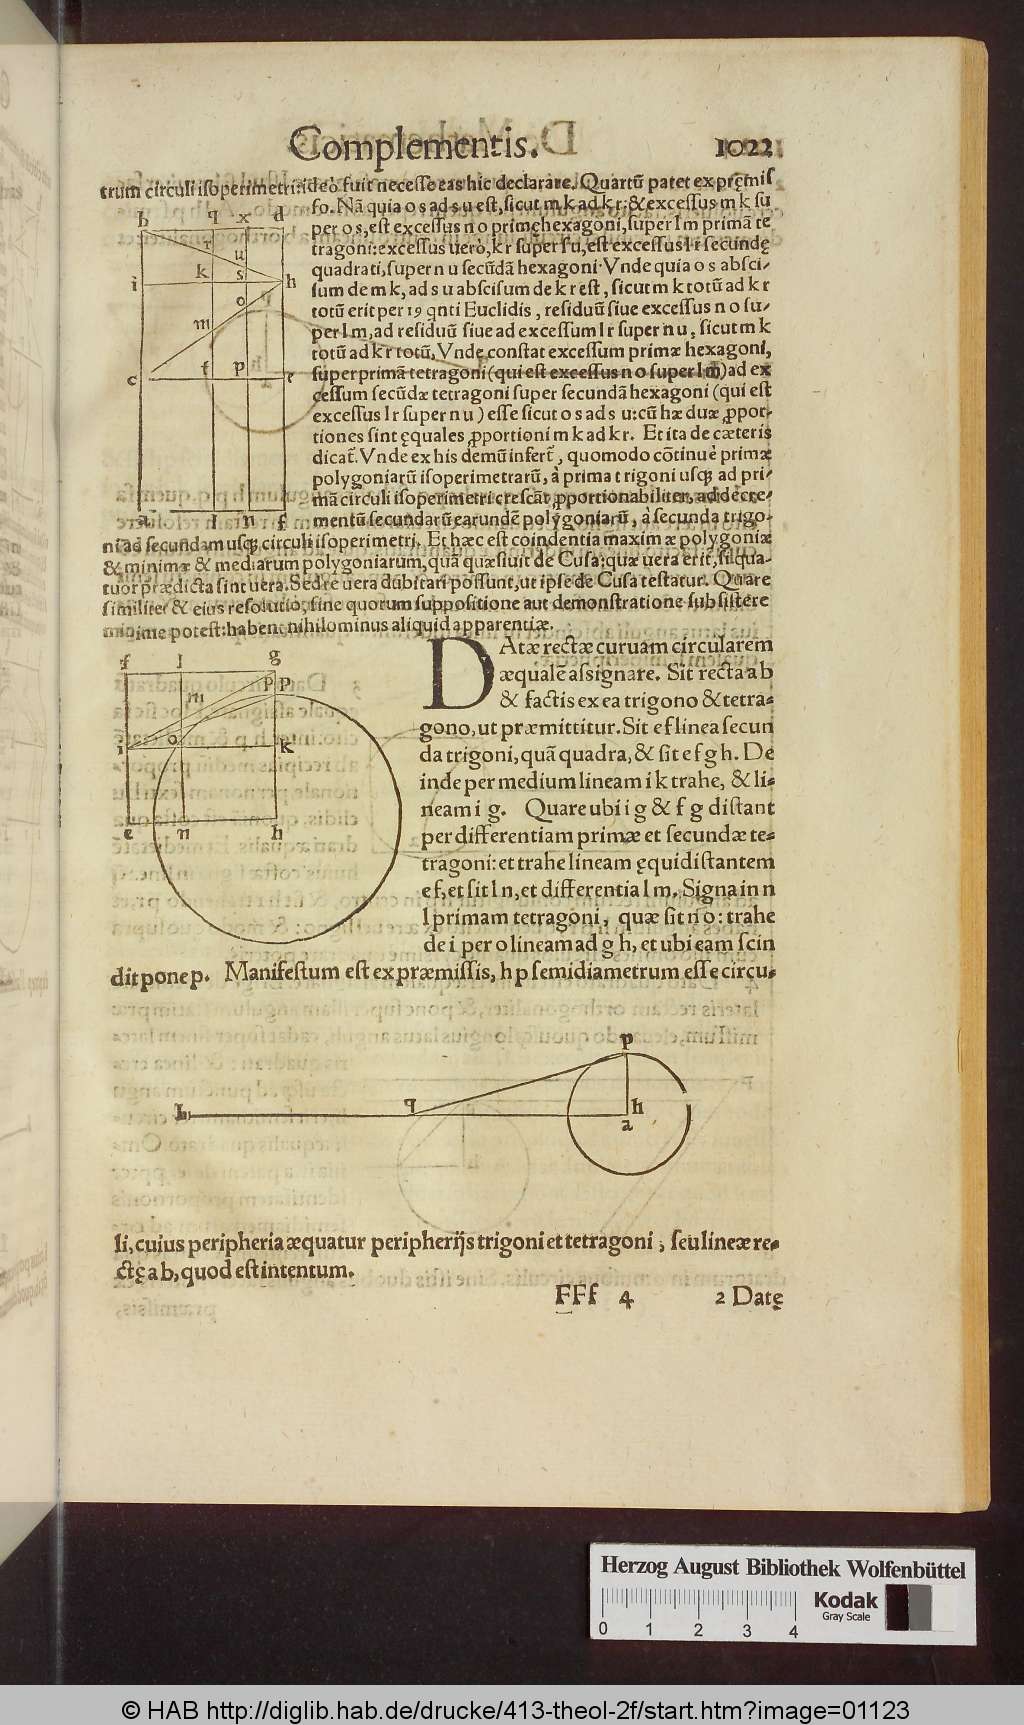 Complementis. 1022
trum circuli isoperimetri: ideò fuit necesse eas hic declarare. Quartū patet ex pręmis
so. Nā quia o s ad s u est, sicut m k ad k r: & excessus m k su
per o s, est excessus n o primę hexagoni, super l m primā te
tragoni: excessus uerò, k r super s u, est excessus l r secundę
quadrati, super n u secūdā hexagoni. Vnde quia o s absci-
sum de m k, ad s u abscisum de k r est, sicut m k totū ad k r
totū erit per 19 qnti Euclidis, residuū siue excessus n o su-
per l m, ad residuū siue ad excessum l r super n u, sicut m k
totū ad k r totū, Vnde constat excessum primæ hexagoni,
super primā tetragoni (qui est excessus n o super l m) ad ex
cessum secūdæ tetragoni super secundā hexagoni (qui est
excessus l r super n u) esse sicut o s ad s u: cū hæ duæ ꝓpor-
tiones sint ęquales ꝓportioni m k ad k r. Et ita de cæteris
dicat̄. Vnde ex his demū infert̄, quomodo cōtinuè primæ
polygoniarū isoperimetrarū, à prima trigoni usqꝫ ad pri-
mā circuli isoperimetri crescāt ꝓportionabiliter, ad decre-
mentū secundarū earundē polygoniarū, à secunda trigo-
ni ad secundam usqꝫ circuli isoperimetri. Et hæc est coindentia maximæ polygoniæ
& minimæ & mediarum polygoniarum, quā quæsiuit de Cusa: quæ uera erit, si qua-
tuor prædicta sint uera. Sed re uera dubitari possunt, ut ipse de Cusa testatur. Quare
similiter & eius resolutio, sine quorum suppositione aut demonstratione subsistere
minime potest: habent nihilominus aliquid apparentiæ.
b q x d
r
u
i k s h
o
m
c f p e
a l n f
DAtæ rectæ curuam circularem
æqualē assignare. Sit recta a b
& factis ex ea trigono & tetra-
gono, ut præmittitur. Sit e f linea secun
da trigoni, quā quadra, & sit e f g h. De
inde per medium lineam i k trahe, & li-
neam i g. Quare ubi i g & f g distant
per differentiam primæ et secundæ te-
tragoni: et trahe lineam ęquidistantem
e f, et sit l n, et differentia l m. Signa in n
l primam tetragoni, quæ sit n o: trahe
de i per o lineam ad g h, et ubi eam scin
dit pone p. Manifestum est ex præmissis, h p semidiametrum esse circu-
f l g
m p p
i o k
e n h
p
b q h
a
li, cuius peripheria æquatur peripherijs trigoni et tetragoni, seu lineæ re-
ctę a b, quod est intentum.
FFf 4 2 Datę
Herzog August Bibliothek Wolfenbüttel
0 1 2 3 4
Kodak
Gray Scale
© HAB http://diglib.hab.de/drucke/413-theol-2f/start.htm?image=01123